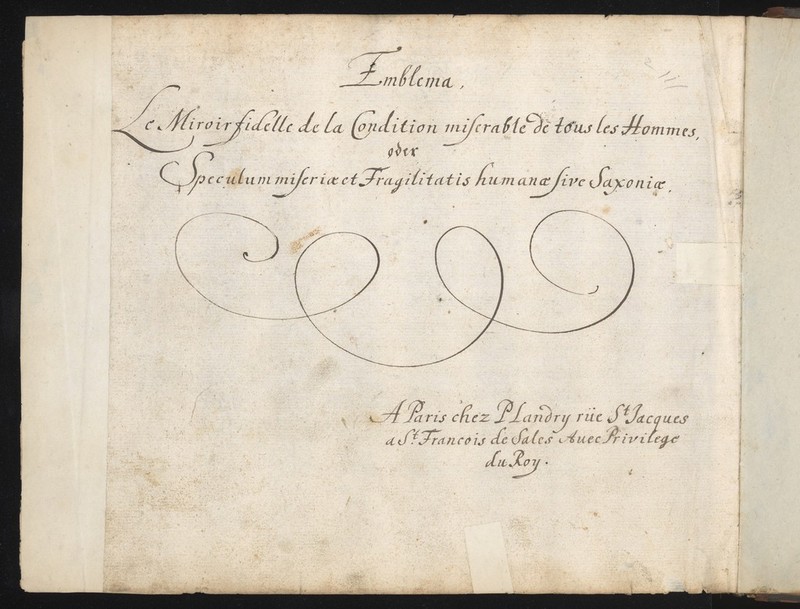 Emblema,
Le Miroir fidelle de la Condition miserable de tous les Hommes,
oder
Speculum miseriæ et Fragilitatis humanæ sive Saxoniæ.
A Paris chez P Landry rüe St. Jacques
a St. Francois de Sales Avec Privilege
du Roy.